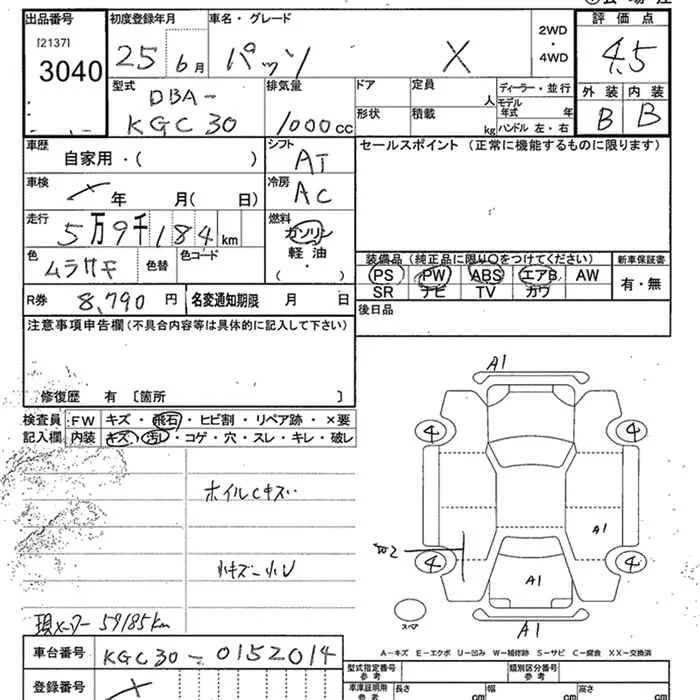 出品番号 初度登録年月 車名・グレード 2WD・4WD 評価点
[2137]
3040 25 6月 パッソ X 4.5
型式 排気量 ドア 定員 人 ディーラー・並行 外装 内装
DBA- 形状 積載 kg モデル年式 年 B B
KGC30 1000cc ハンドル 左・右
車歴 シフト セールスポイント (正常に機能するものに限ります)
自家用・( ) AT
車検 年 月( 日) 冷房 AC
走行 燃料
5万9千184km ガソリン
色 色替 色コード 軽油
ムラサキ ( )
装備品 (純正品に限り○をつけてください) 新車保証書
PS PW ABS エアB AW 有・無
SR ナビ TV カワ
R券 8,790円 名変通知期限 月 日 後日品
注意事項申告欄(不具合内容等は具体的に記入して下さい)
修復歴 有 〔箇所 〕
検査員 FW キズ・飛石・ヒビ割・リペア跡・×要
記入欄 内装 キズ・汚レ・コゲ・穴・スレ・キレ・破レ
ホイルCキズ
小キズ小U
現メーター 59185km
A1
4 4
A1
4 4
A1
スペア
A1
A-キズ E-エクボ U-凹み W-補修跡 S-サビ C-腐食 XX-交換済
車台番号 KGC30-0152014
型式指定番号 参考 類別区分番号 参考
登録番号 車庫証明用 参考 長さ cm 幅 cm 高さ cm